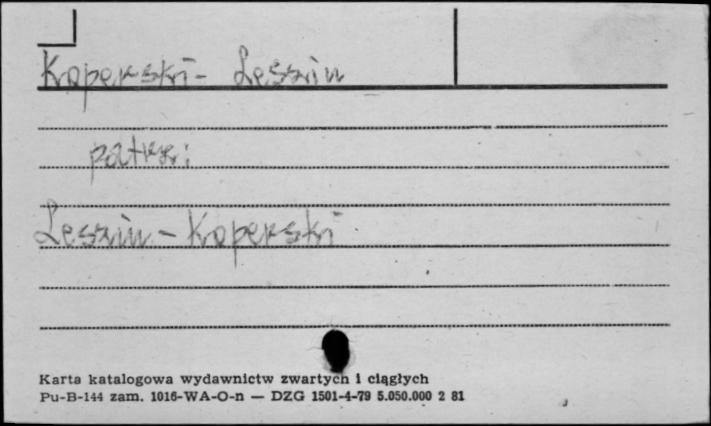 Koperski- Leszin
patrz:
Leszin-Koperski
Karta katalogowa wydawnictw zwartych i ciągłych
Pu-B-144 zam. 1016-WA-O-n — DZG 1501-4-79 5.050.000 2 81